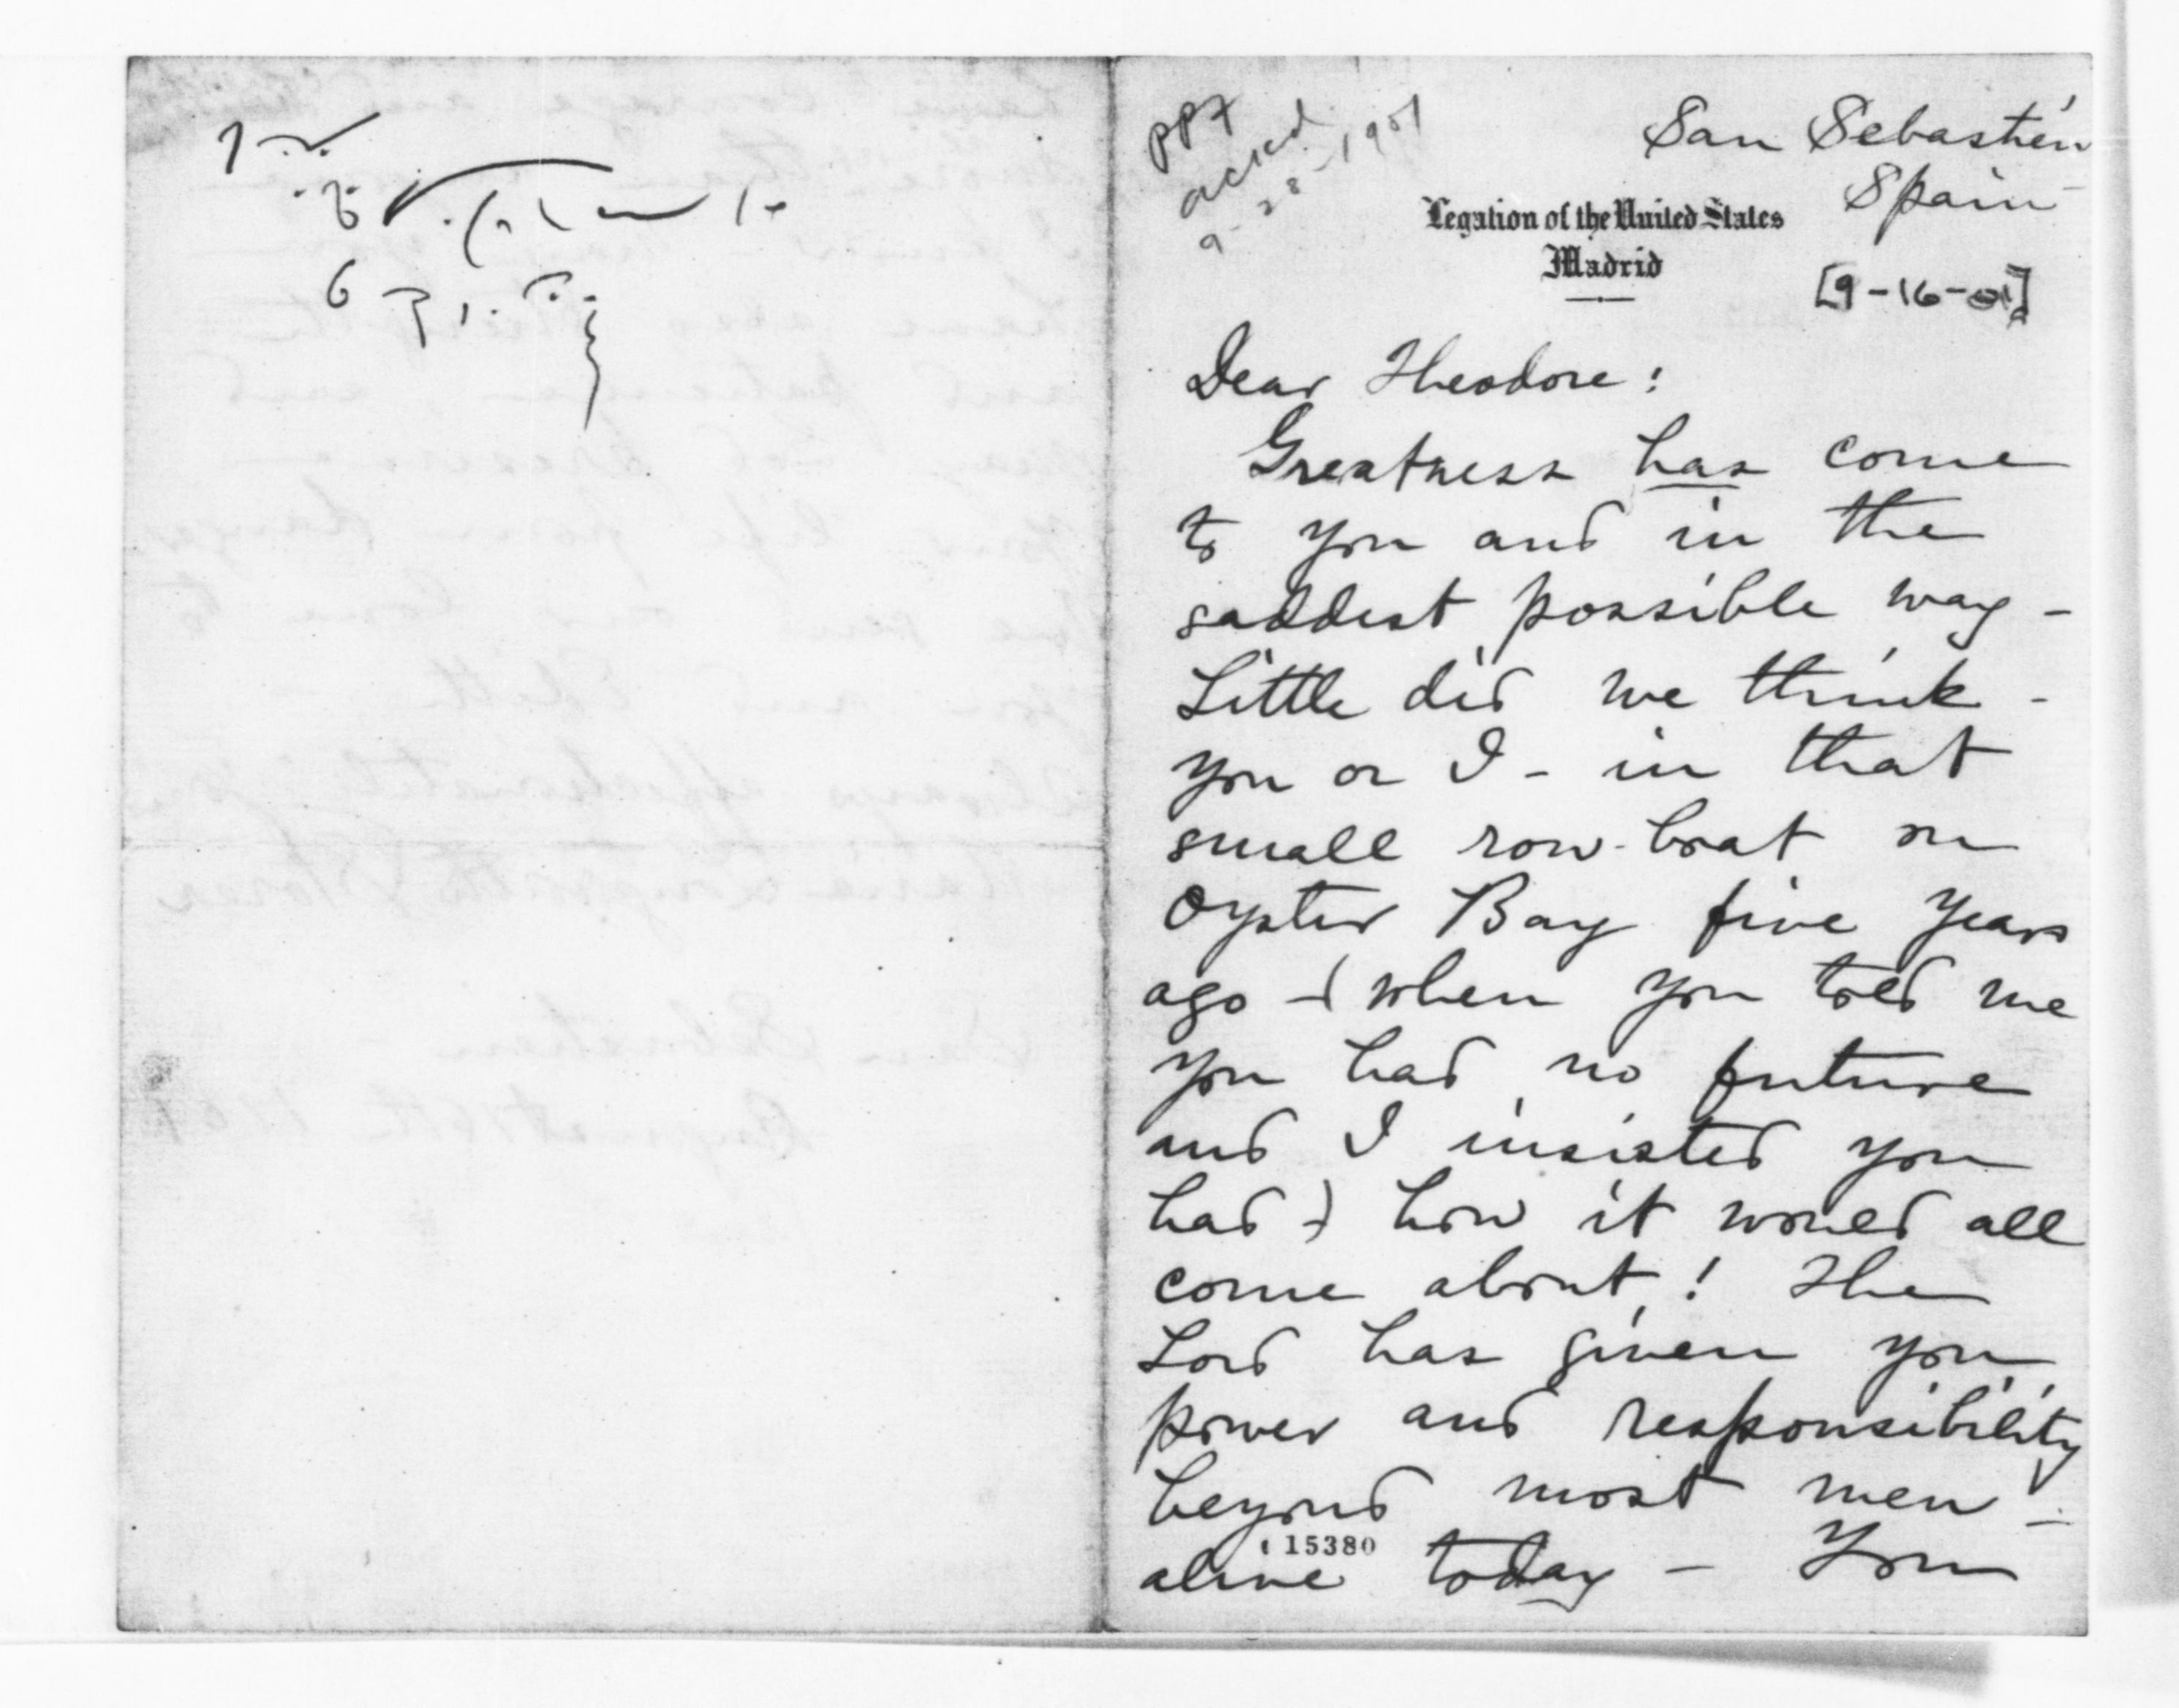 PPF
ackd
9-28-1901
San Sebastien
Spain
Legation of the United States
Madrid
[9-16-01]
Dear Theodore:
Greatness has come
to you and in the
saddest possible way -
Little did we think -
you or I - in that
small row-boat on
Oyster Bay five years
ago - (when you told me
you had no future
and I insisted you
had -) how it would all
come about! The
Lord has given you
power and responsibility
beyond most men -
alive today - You
15380